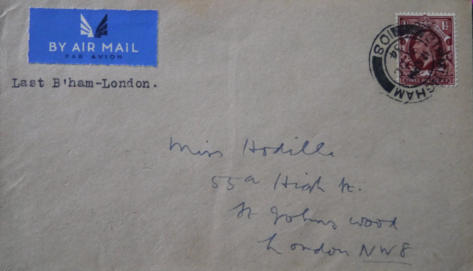 BY AIR MAIL
PAR AVION
Last B'ham-London.
1½
108
GHAM
Miss Hodill
55a High St.
St Johns Wood
London NW8